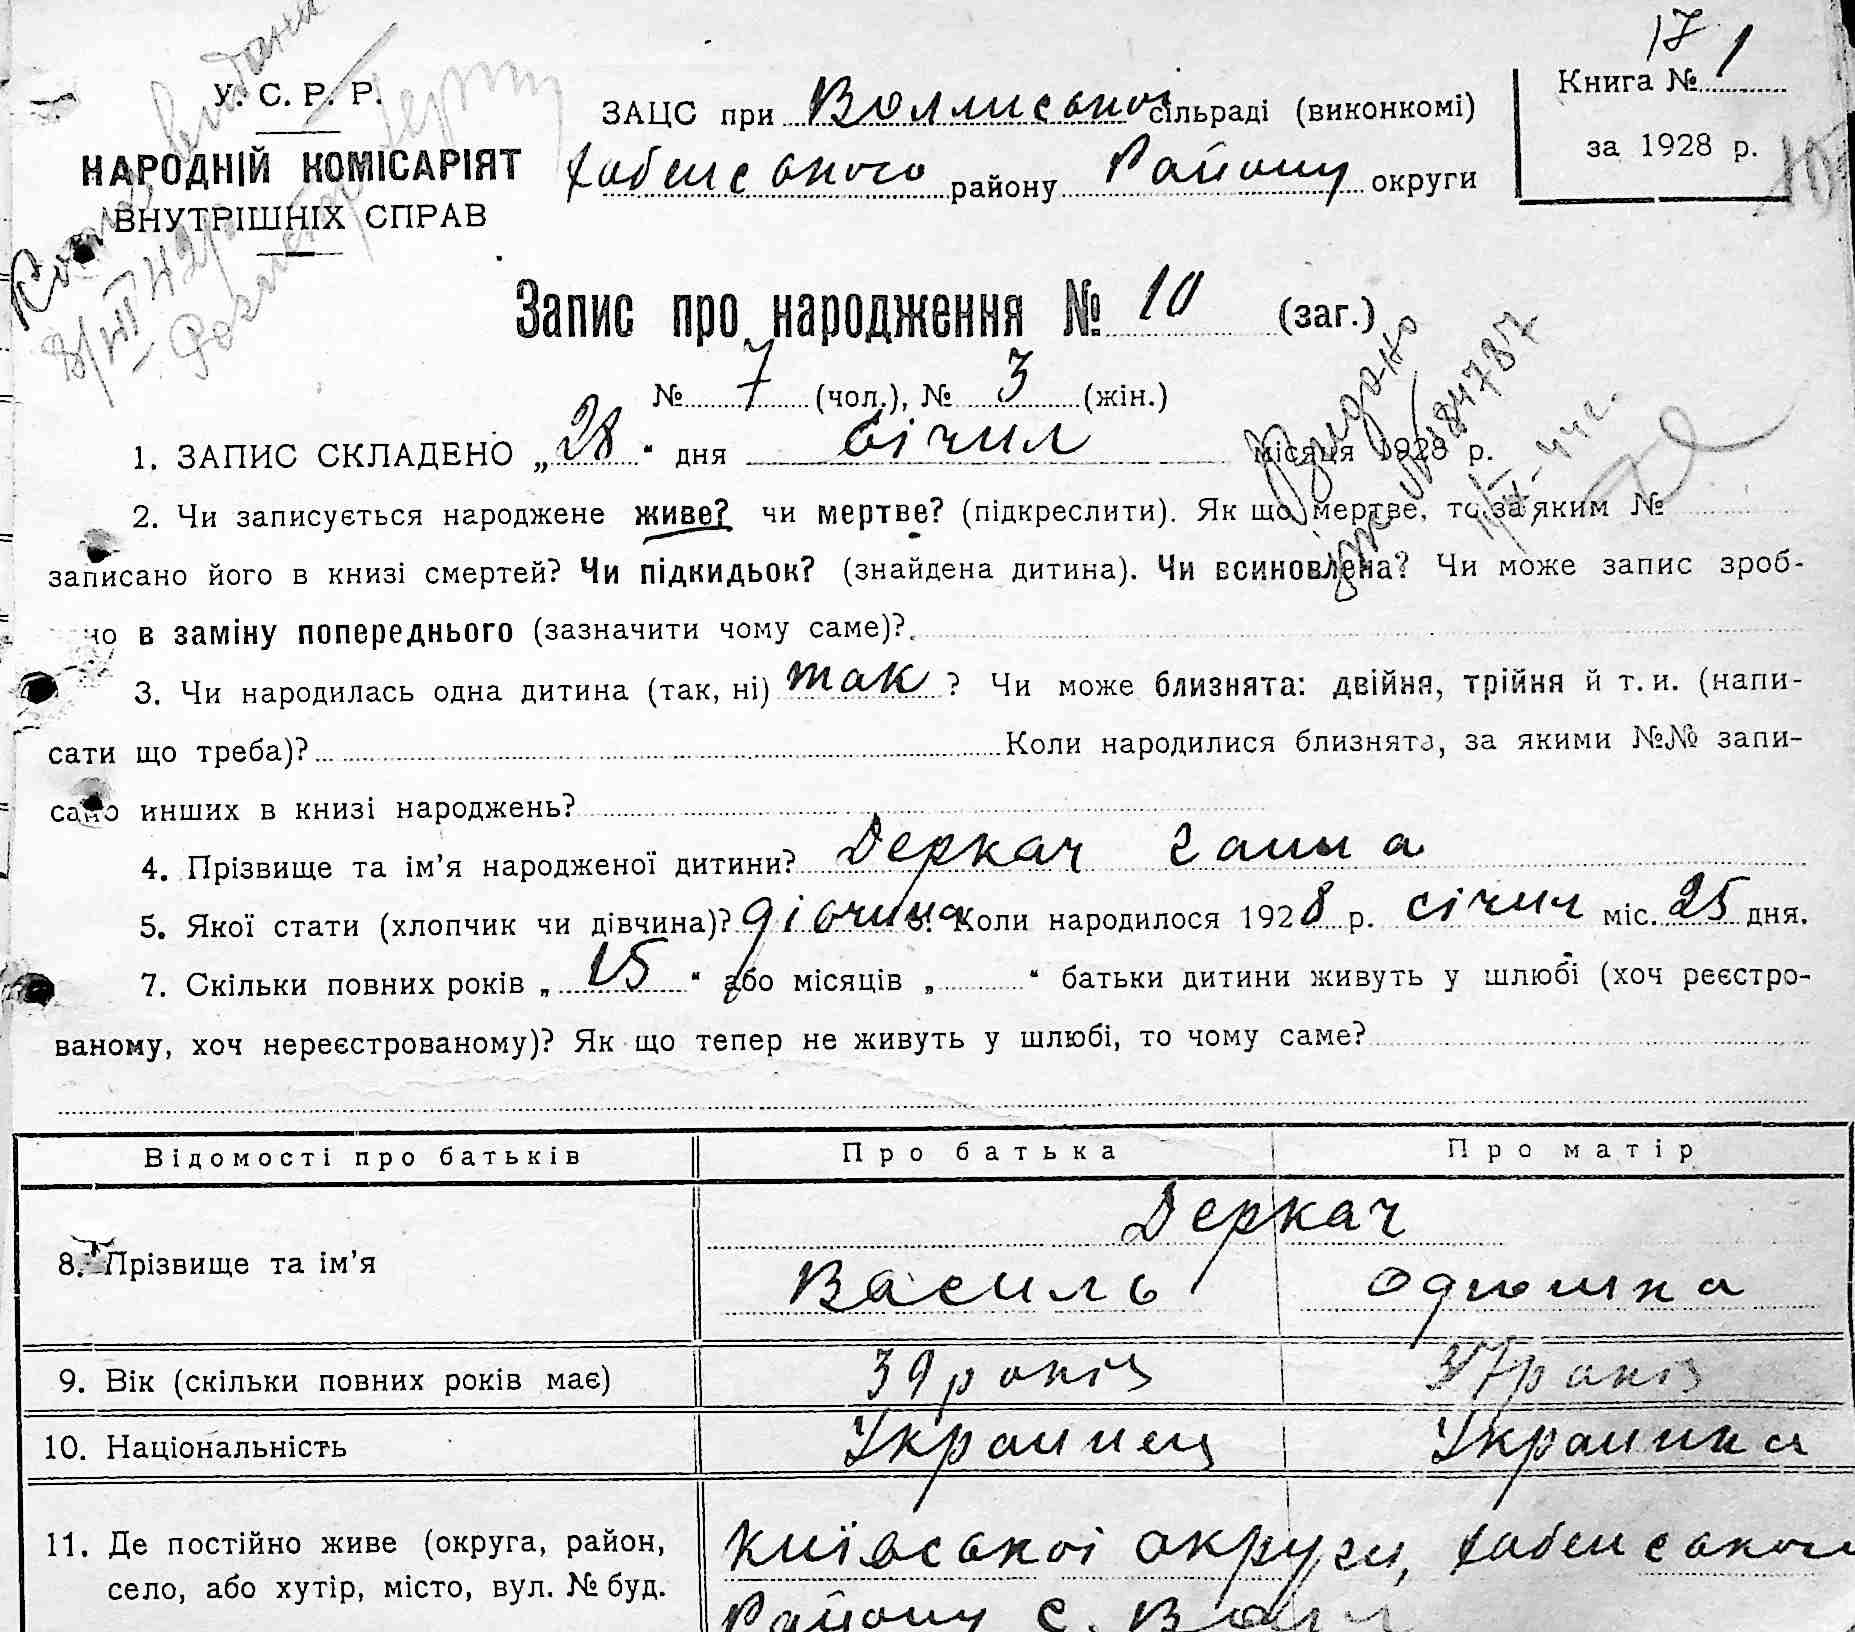 У. С. Р. Р.
НАРОДНІЙ КОМІСАРІЯТ
ВНУТРІШНІХ СПРАВ
ЗАЦС при сільраді (виконкомі)
Хабенського району Району округи
Книга № 1
за 1928 р.
Запис про народження № 10 (заг.)
№ 7 (чол.), № 3 (жін.)
1. ЗАПИС СКЛАДЕНО „28" дня січня місяця 1928 р.
2. Чи записується народжене живе? чи мертве? (підкреслити). Як що мертве, то за яким №
записано його в книзі смертей? Чи підкидьок? (знайдена дитина). Чи всиновлена? Чи може запис зроб-
но в заміну попереднього (зазначити чому саме)?
3. Чи народилась одна дитина (так, ні) так ? Чи може близнята: двійня, трійня й т. и. (напи-
сати що треба)? Коли народилися близнята, за якими №№ запи-
сано инших в книзі народжень?
4. Прізвище та ім'я народженої дитини? Деркач Ганна
5. Якої стати (хлопчик чи дівчина)? дівчина Коли народилося 1928 р. січня міс. 25 дня.
7. Скільки повних років „15" або місяців „ " батьки дитини живуть у шлюбі (хоч реєстро-
ваному, хоч нереєстрованому)? Як що тепер не живуть у шлюбі, то чому саме?
Відомості про батьків Про батька Про матір
8. Прізвище та ім'я Деркач
Василь
9. Вік (скільки повних років має) 39 років 37 років
10. Національність Украинец Украинка
11. Де постійно живе (округа, район,
село, або хутір, місто, вул. № буд.
Київської округи, Хабенського
Району с.